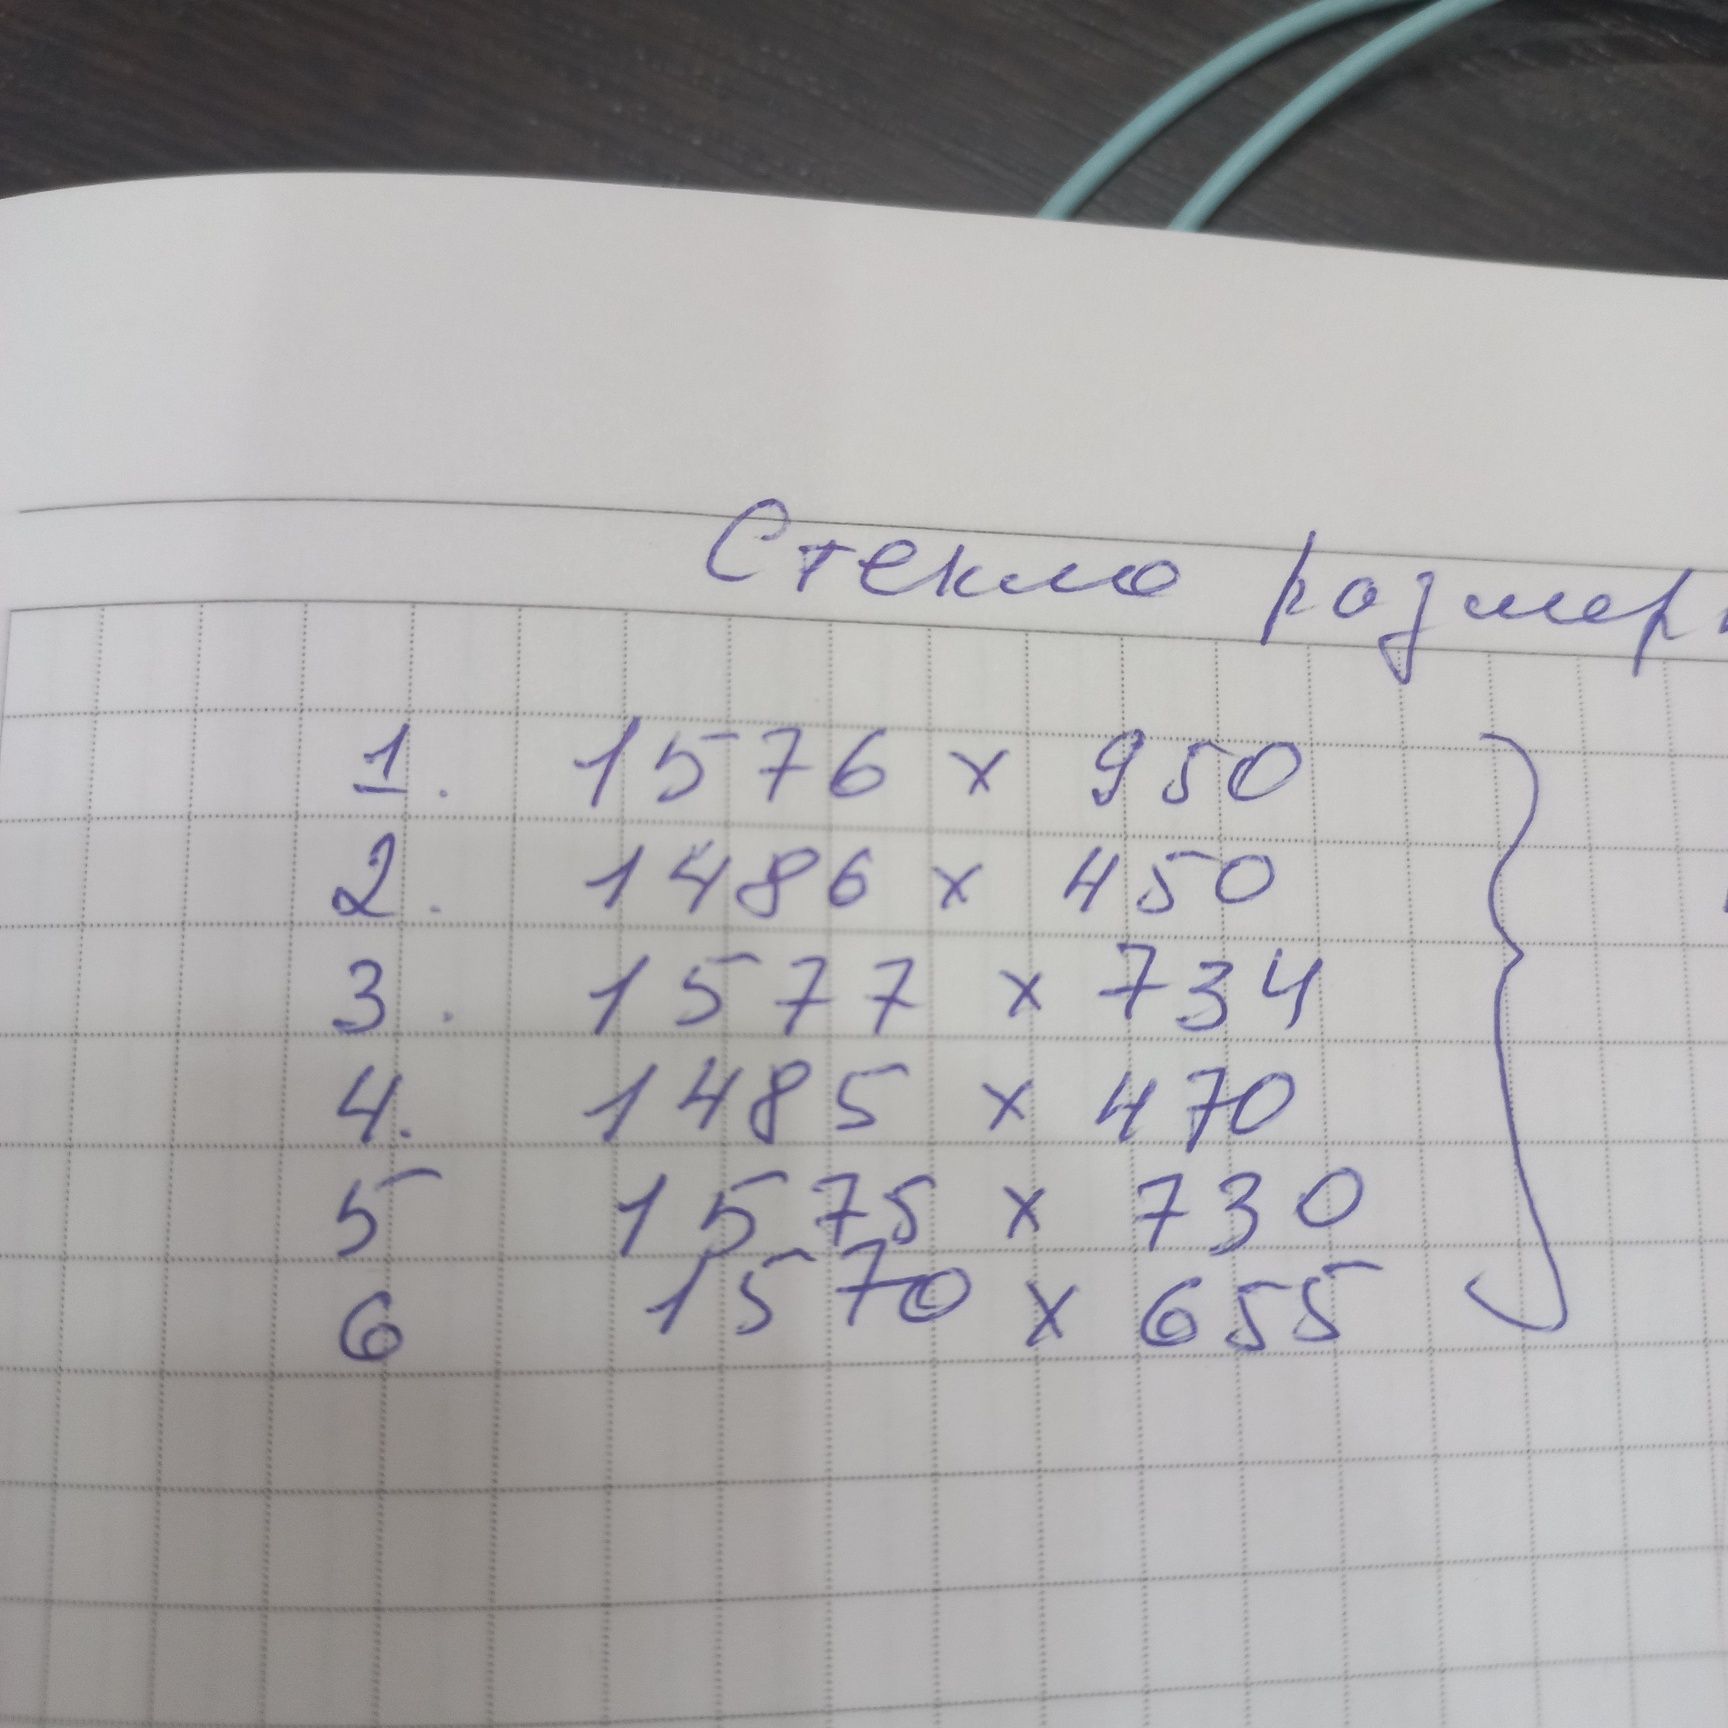 Стекло размер
1. 1576 x 950
2. 1486 x 450
3. 1577 x 734
4. 1485 x 470
5 1575 x 730
6 1570 x 655